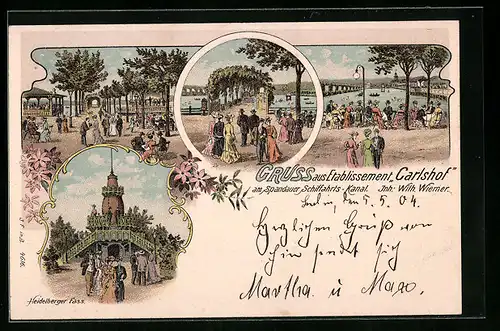 Gruss aus Etablissement „Carlshof“
am Spandauer Schiffahrts-Kanal. Inh. Wilh. Wiemer.
5. 5. 04.
Herzlichen Gruß von
sendet sich
Martha u Max.
Heidelberger Fass.